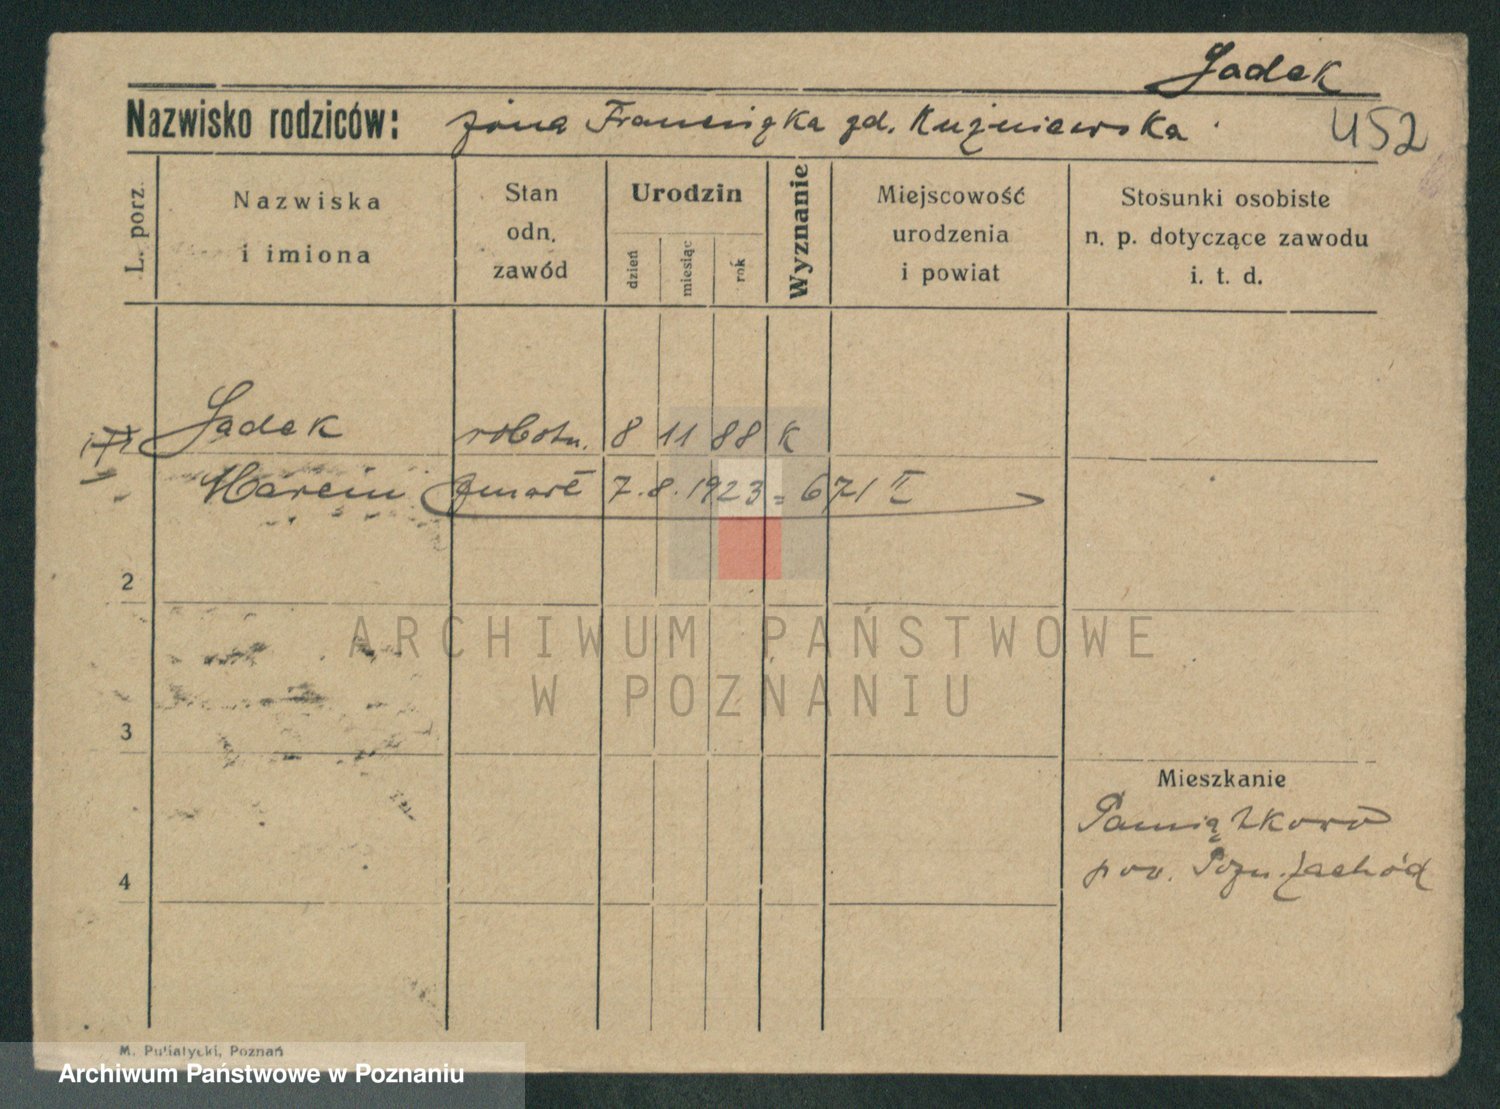 Jadek
Nazwisko rodziców: żona Franciszka zd. Kuźniewska
452
L. porz.
Nazwiska
i imiona
Stan
odn.
zawód
Urodzin
dzień
miesiąc
rok
Wyznanie
Miejscowość
urodzenia
i powiat
Stosunki osobiste
n. p. dotyczące zawodu
i. t. d.
Jadek robotn. 8 11 88 K
Marcin zmarł 7.8.1923 = 671 II
2
3
4
Mieszkanie
Pamiątkowo
pow. Pozn. Zachód
ARCHIWUM PAŃSTWOWE
W POZNANIU
M. Putiatycki, Poznań
Archiwum Państwowe w Poznaniu